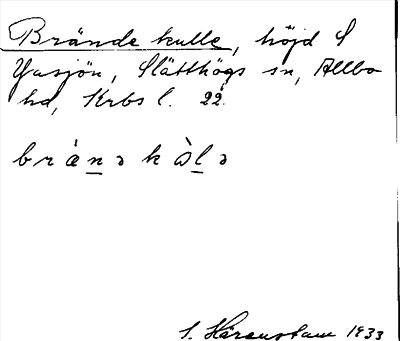 Brände kulle, höjd S
Yasjön, Slätthögs sn, Allbo
hd, Krbs l. 22.
brä̀n̲ə kòl̲ə
S. Härenstam 1933